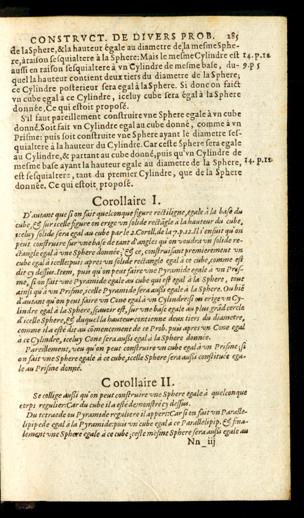 CONSTRVCT. DE DIVERS PROB. 285
de la Sphere, & la hauteur égale au diametre de la mesme Sphe-
re, à raison sesquialtere à la Sphere: Mais le mesme Cylindre est 14.p.12
aussi en raison sesquialtere à vn Cylindre de mesme base, du- 9.p.5
quel la hauteur contient deux tiers du diametre de la Sphere,
ce Cylindre posterieur sera egal à la Sphere. Si donc on faict
vn cube egal à ce Cylindre, iceluy cube sera égal à la Sphere
donnée, Ce qui estoit proposé.
S'il faut pareillement construire vne Sphere egale à vn cube
donné. Soit fait vn Cylindre egal au cube donné, comme à vn
Prisme: puis soit construite vne Sphere ayant le diametre ses-
quialtere à la hauteur du Cylindre. Car ceste Sphere sera egale
au Cylindre, & partant au cube donné, puis qu'vn Cylindre de
mesme base ayant la hauteur egale au diametre de la Sphere, 14.p.12
est sesquialtere, tant du premier Cylindre, que de la Sphere
donnée. Ce qui estoit proposé.
Corollaire I.
D'autant que si on fait quelconque figure rectiligne, egale à la base du
cube, & sur icelle figure on erige vn solide rectãgle à la hauteur du cube,
iceluy solide sera égal au cube par le 2. Coroll. de la 7.p.12. Il s'ensuit qu'on
peut construire sur vne base de tant d'angles qu'on voudra vn solide re-
ctangle egal à vne Sphere donnée; & ce, construisant premierement vn
cube egal à icelle; puis apres vn solide rectangle egal à ce cube, comme est
dit cy dessus. Item, puis qu'on peut faire vne Pyramide egale à vn Pris-
me, si on fait vne Pyramide egale au cube qui est egal à la Sphere, tout
ainsi qu'à vn Prisme, icelle Pyramide sera aussi egale à la Sphere. Ou biẽ
d'autant qu'on peut faire vn Cone egal à vn Cylindre: si on erige vn Cy-
lindre egal à la Sphere, sçauoir est, sur vne base egale au plus grãd cercle
d'icelle Sphere, & duquel la hauteur contienne deux tiers du diametre,
comme il a esté dit au cõmencement de ce Prob. puis apres vn Cone egal
à ce Cylindre, iceluy Cone sera aussi egal à la Sphere donnée.
Pareillement, veu qu'on peut construire vn cube egal à vn Prisme; si
on fait vne Sphere egale à ce cube, icelle Sphere sera aussi constituée ega-
le au Prisme donné.
Corollaire II.
Se collige aussi qu'on peut construire vne Sphere egale à quelconque
corps regulier. Car du cube il a esté demonstré cy dessus.
Du tetraede ou Pyramide reguliere il appert: Car si on fait vn Paralle-
lipipede egal à la Pyramide: puis vn cube egal à ce Parallelipip. & fina-
lement vne Sphere egale à ce cube; ceste mesme Sphere sera aussi egale au
Nn iij